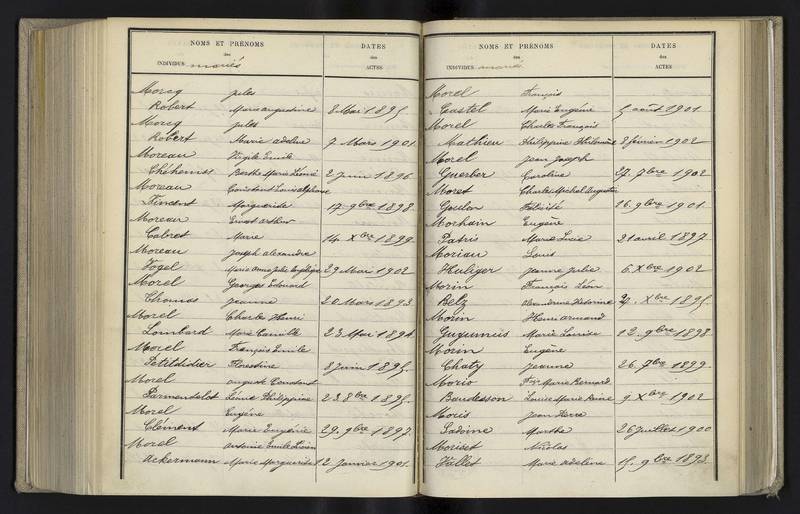 NOMS ET PRÉNOMS
des
INDIVIDUS mariés
DATES
des
ACTES
Morcq Jules
Robert Marie augustine 8 Mai 1895.
Morcq Jules
Robert Marie adeline 7 Mars 1901.
Moreau Virgile Emile
Chéhemis Berthe Marie Léonie 2 Juin 1896
Moreau Constant Louis alphonse
Finement Marguerite 17. 9bre 1898.
Moreau Ernest arthur
Cabret Marie 14. Xbre 1899.
Moreau Joseph alexandre
Vogel Marie Anne Julie 29 Mai 1902
Morel Georges Edouard
Thomas Jeanne 20 Mars 1893
Morel Charles Henri
Lombard Marie Camille 23 Mai 1894.
Morel François Emile
Petitdidier Florestine 8 Juin 1895.
Morel auguste Constant
Parmentelot Léonie Philippine 23 8bre 1895.
Morel Eugène
Clément Marie Eugénie 29. 9bre 1897.
Morel antoine Emile
Ackermann Marie Marguerite 12 Janvier 1901.
NOMS ET PRÉNOMS
des
INDIVIDUS mariés
DATES
des
ACTES
Morel François
Castel Marie Eugénie 5 août 1901.
Morel Charles François
Mathieu Philippine Philomène 8 février 1902
Morel Jean Joseph
Guerber Caroline 27. 7bre 1902
Moret Charles Michel Augustin
Goulon Félicité 16. 9bre 1901.
Morhain Eugène
Patris Marie Lucie 21 avril 1897.
Moriau Louis
Huliger Jeanne Julie 6 Xbre 1902
Morin François Léon
Belz alexandrine Victorine 24. Xbre 1895.
Morin Henri armand
Marie Louise 12. 9bre 1898
Morin Eugène
Chaty Jeanne 26. 7bre 1899.
Morio Frs Marie Bernard
Baudesson Louise Marie Reine 9 Xbre 1902
Moris Jean Pierre
Sadoine Marthe 26 Juillet 1900
Moriset Nicolas
Vallet Marie adeline 15. 9bre 1893.